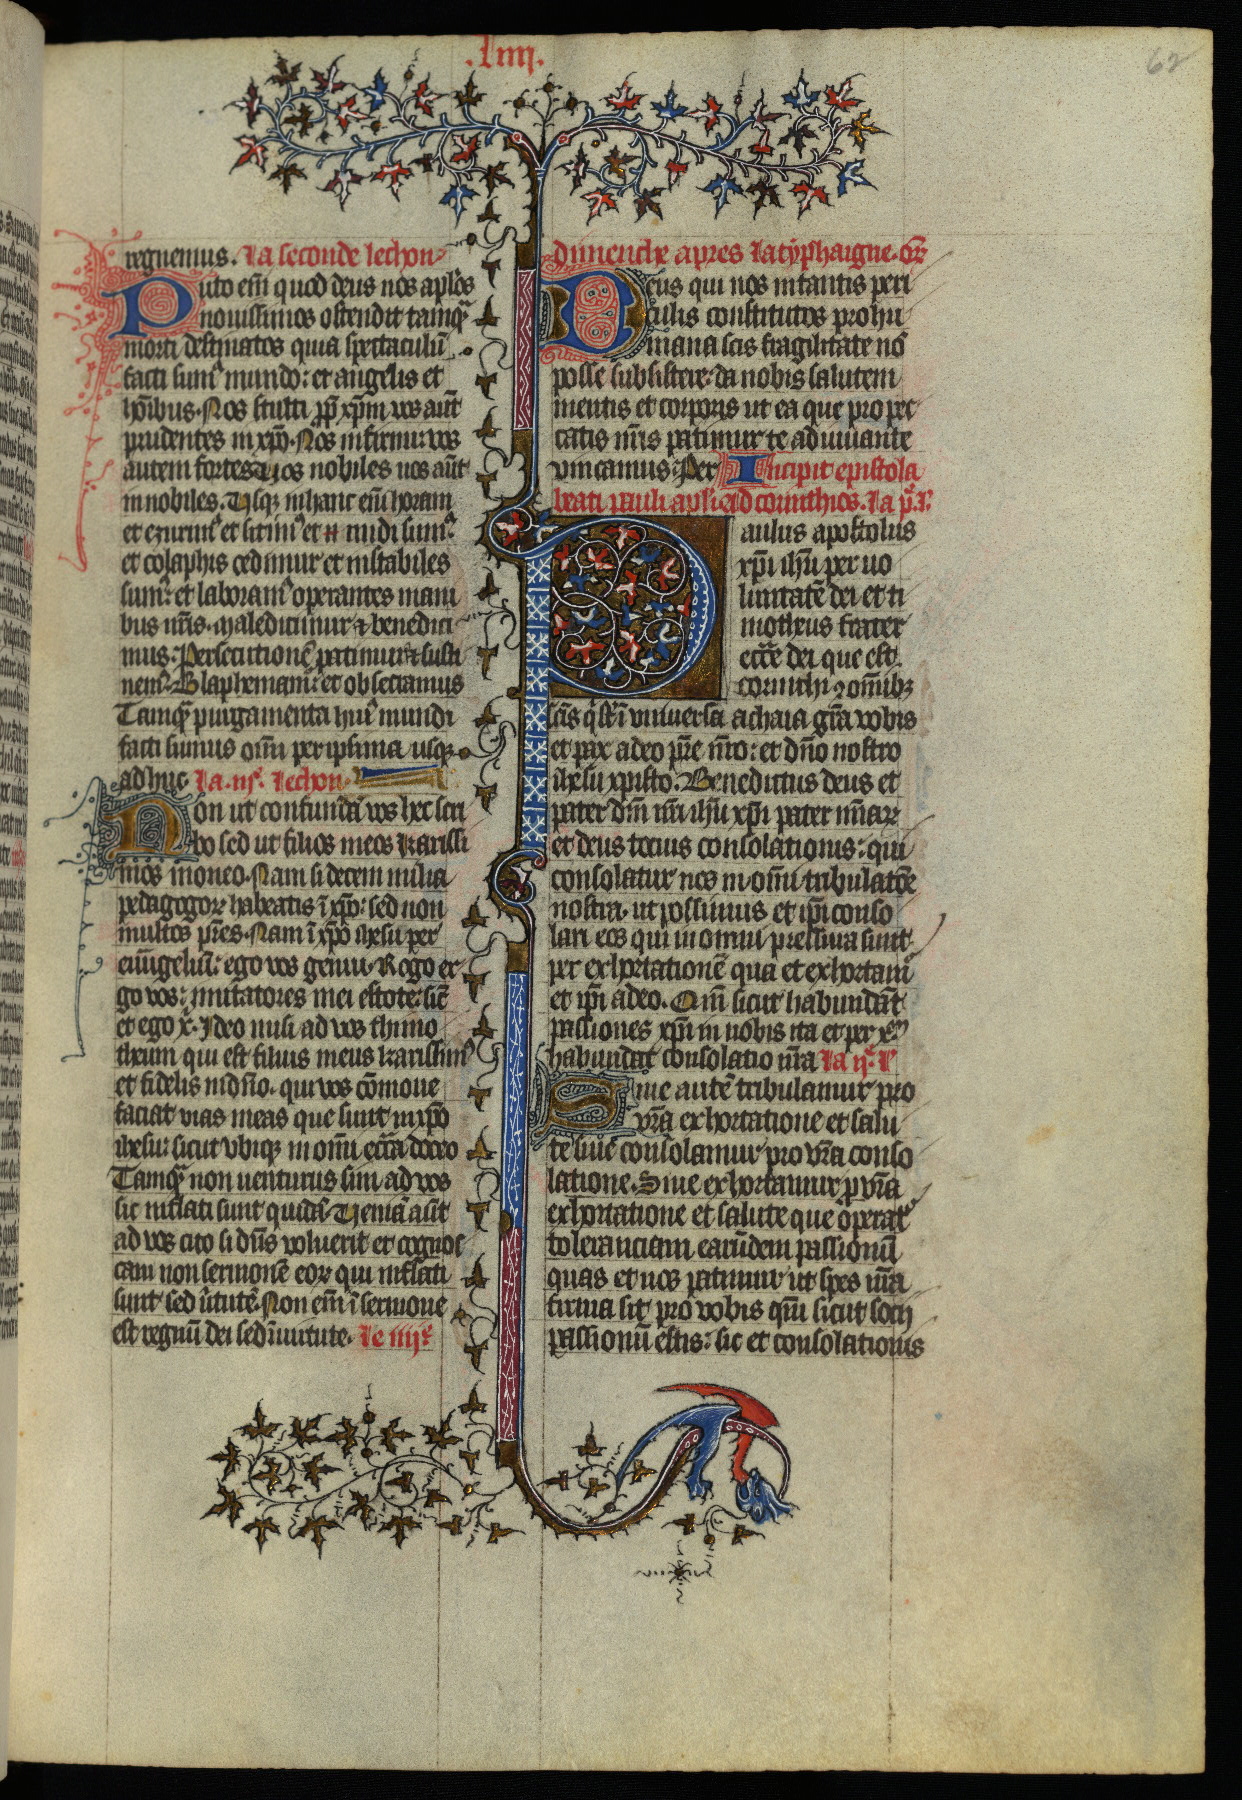 .liiij.
62
regnemus. La seconde lechon
Puto em̄ quod deus nos aplōs
nouissimos ostendit tamqᷓ
morti destinatos quia spectaculū
facti sumꝰ mundo: et angelis et
hōibus. Nos stulti pp̄ xp̄m vos aūt
prudentes in xp̄o. Nos infirmi: vos
autem fortes. Uos nobiles nos aūt
in nobiles. Usqꝫ in hanc em̄ horam
et ezurimꝰ et sitimꝰ et nudi sumꝰ.
et colaphis cedimur et instabiles
sumꝰ: et laboramꝰ operantes mani
bus nr̄is. Maledicimur ⁊ benedici
mus: Persecutionē patimur ⁊ susti
nemꝰ. Blasphemamꝰ: et obsecramus
Tamqᷓ purgamenta huiꝰ mundi
facti sumus om̄i peripsima usqꝫ
ad huc. La .iijᵉ. lechon
Non ut confundā vos hec scri
bo sed ut filios meos karissi
mos moneo. Nam si decem milia
pedagogoꝝ habeatis ī xp̄o: sed non
multos pr̄es. Nam ī xp̄o ihesu per
euūgeliū: ego vos genui. Rogo er
go vos: imitatores mei estote: sic̄
et ego x̄. Ideo misi ad vos thimo
theum qui est filius meus karissimꝰ
et fidelis in dn̄o. qui vos cōmone
faciat vias meas que sunt in xp̄o
ihesu: sicut vbiqꝫ in om̄i ecc̄a doceo
Tamqᷓ non uenturus sim ad vos
sic inflati sunt quidā. Ueniā aūt
ad vos cito si dn̄s voluerit et cognos
cam non sermonē eoꝝ qui inflati
sunt sed ūtutē. Non em̄ ī sermone
est regnū dei sed ī uirtute. Le iiijᵉ
Dimenche apres la typhaigne. or̄
Deus qui nos in tantis peri
culis constitutos pro hu
mana scis fragilitate nō
posse subsistere: da nobis salutem
mentis et corporis ut ea que pro pec
catis nr̄is patimur te adiuuante
vincamus. Per Incipit epistola
beati pauli apl̄i ad corinthios. la p̄. l̄.
Paulus apostolus
xp̄i ih̄u per uo
luntatē dei et ti
motheus frater
ecc̄e dei que est
corinthi ⁊ om̄ibꝫ
sc̄is q̄ st̄ ī vniuersa achaia gr̄a vobis
et pax a deo pr̄e nr̄o: et dn̄o nostro
ihesu xpisto. Benedictus deus et
pater dn̄i nr̄i ih̄u xp̄i pater mīaꝝ
et deus tocius consolationis: qui
consolatur nos in om̄i tribulatōe
nostra. ut possimus et ip̄i conso
lari eos qui in omni pressura sunt
per exhortationē qua et exhortamꝰ
et ip̄i a deo. Qm̄ sicut habundāt
passiones xp̄i in nobis ita et per xp̄m
habundat consolatio nr̄a La ijᵉ. l̄
Siue autē tribulamur pro
vr̄a exhortatione et salu
te siue consolamur pro vr̄a conso
latione. Siue exhortamur p vr̄a
exhortatione et salute que operatꝰ
toleranciam earūdem passionū
quas et nos patimur ut spes nr̄a
firma sit pro vobis qm̄ sicut socij
passionū estis: sic et consolationis